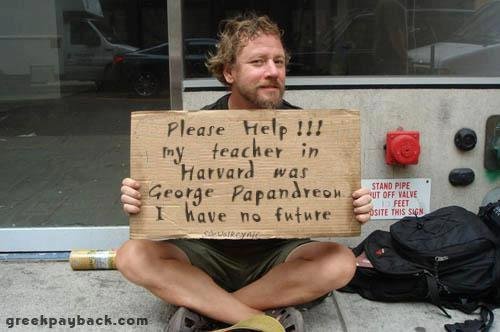 Please Help !!!
my teacher in
Harvard was
George Papandreou
I have no future
STAND PIPE
UT OFF VALVE
FEET
OSITE THIS SIGN
greekpayback.com